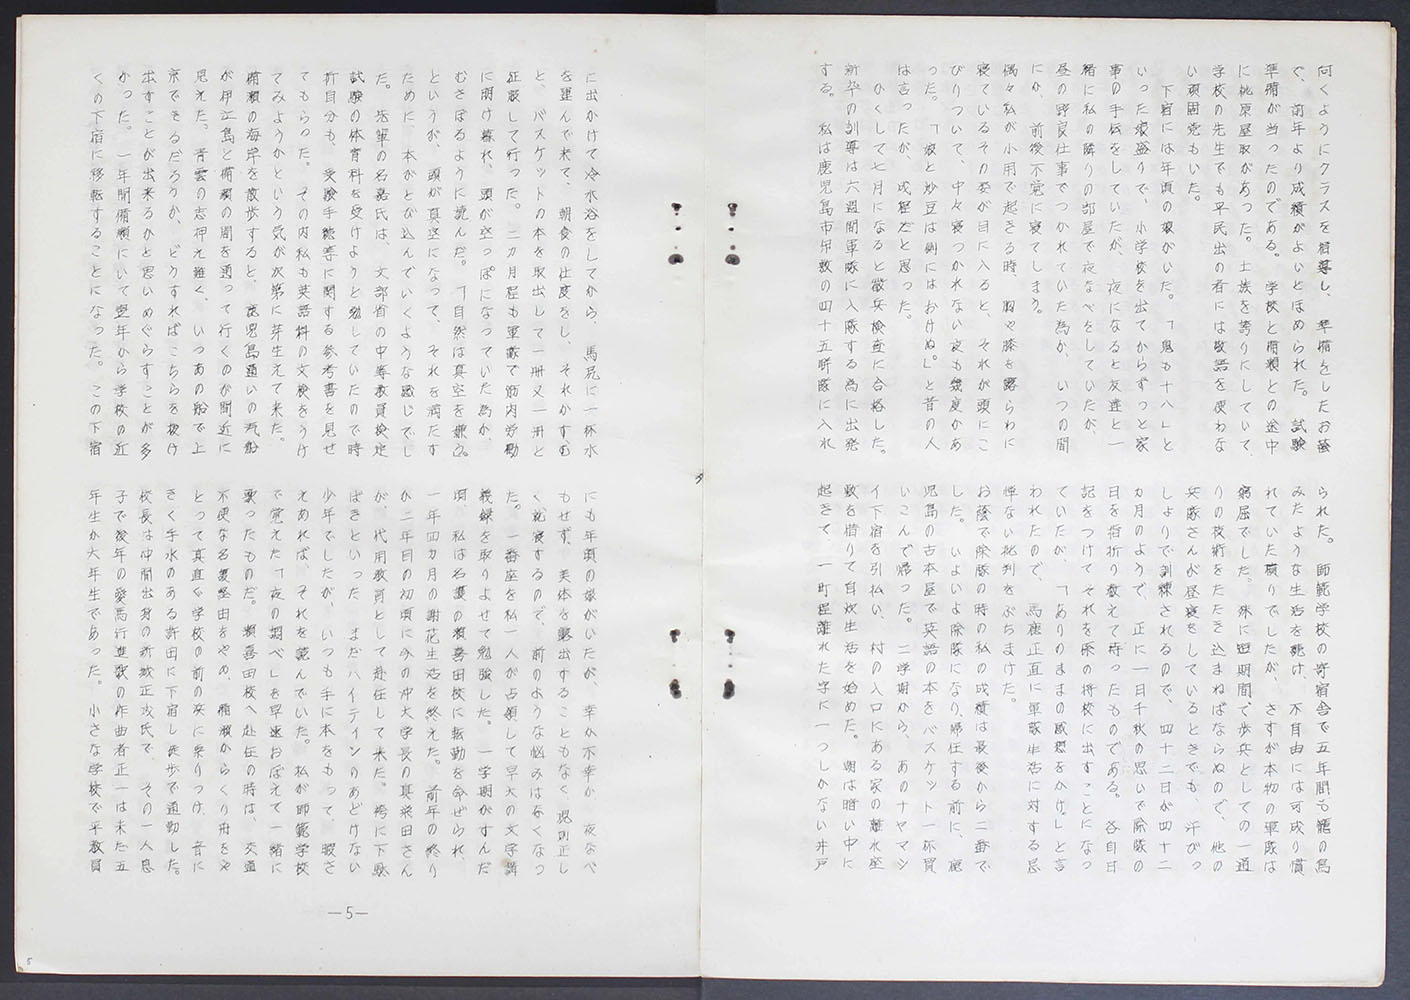 向くようにクラスを指導し、準備をしたお蔭
で、前年より成績がよいとほめられた。試験
準備が当ったのである。学校と備瀬との途中
に桃原屋取があった。士族を誇りにしていて、
学校の先生でも平民出の者には敬語を使わな
い頑固党もいた。
下宿には年頃の娘がいた。「鬼も十八」と
いった娘盛りで、小学校を出てからずっと家
事の手伝をしていたが、夜になると友達と一
緒に私の隣りの部屋で夜なべをしていたが、
昼の野良仕事でつかれていた為か、いつの間
にか、前後不覚に寝てしまう。
偶々私が小用で起きる時、胸や膝を露らわに
寝ているその姿が目に入ると、それが頭にこ
びりついて、中々寝つかれない夜も幾度かあ
った。「娘と炒豆は側にはおけぬ」と昔の人
は言ったが、成程だと思った。
かくして七月になると徴兵検査に合格した。
新卒の訓導は六週間軍隊に入隊する為に出発
する。私は鹿児島市伊敷の四十五聯隊に入れ
られた。師範学校の寄宿舎で五年間も籠の鳥
みたような生活を続け、不自由には可成り慣
れていた積りでしたが、さすが本物の軍隊は
窮屈でした。殊に短期間で歩兵としての一通
りの技術をたたき込まねばならぬので、他の
兵隊さんが昼寝をしているときでも、汗びっ
しょりで訓練されるので、四十二日が四十二
カ月のようで、正に一日千秋の思いで除隊の
日を指折り数えて待ったものである。各自日
記をつけてそれを隊の将校に出すことになっ
ていたが、「ありのままの感想をかけ」と言
われたので、馬鹿正直に軍隊生活に対する忌
憚ない批判をぶちまけた。
お蔭で除隊の時の私の成績は最後から二番で
した。いよいよ除隊になり帰任する前に、鹿
児島の古本屋で英語の本をバスケット一杯買
いこんで帰った。二学期から、あのナヤマシ
イ下宿を引払い、村の入口にある家の離れ座
敷を借りて自炊生活を始めた。朝は暗い中に
起きて、一町程離れた字に一つしかない井戸
に出かけて冷水浴をしてから、馬尻に一杯水
を運んで来て、朝食の仕度をし、それがすむ
と、バスケットの本を取出して一冊又一冊と
征服して行った。二カ月程も軍隊で筋肉労働
に明け暮れ、頭が空っぽになっていた為か、
むさぼるように読んだ。「自然は真空を嫌う」
というが、頭が真空になって、それを満たす
ために、本がとび込んでいくような感じでし
た。先輩の名嘉氏は、文部省の中等教員検定
試験の体育科を受けようと勉していたので時
折自分も、受験手続等に関する参考書を見せ
てもらった。その内私も英語科の文検をうけ
てみようかという気が次第に芽生えて来た。
備瀬の海岸を散歩すると、鹿児島通いの汽船
が伊江島と備瀬の間を通って行くのが間近に
見えた。青雲の志押え難く、いつあの船で上
京できるだろうか、どうすればこちらを抜け
出すことが出来るかと思いめぐらすことが多
かった。一年間備瀬にいて翌年から学校の近
くの下宿に移転することになった。この下宿
にも年頃の娘がいたが、幸か不幸か、夜なべ
もせず、美体を露出することもなく規則正し
く就寝するので、前のような悩みはなくなっ
た。一番座を私一人が占領して早大の文学講
義録を取りよせて勉強した。一学期がすんだ
頃、私は名護の瀬喜田校に転勤を命ぜられ、
一年四カ月の謝花生活を終えた。前年の終り
か二年目の初頃に今の沖大学長の真栄田さん
が、代用教員として赴任して来た。袴に下駄
ばきといった、まだハイティンのあどけない
少年でしたが、いつも手に本をもって、暇さ
えあれば、それを読んでいた。私が師範学校
で覚えた「夜の調べ」を早速おぼえて一緒に
歌ったものだ。瀬喜田校へ赴任の時は、交通
不便な名護経由をやめ、備瀬からくり舟をや
とって真直ぐ学校の前の浜に乗りつけ、音に
きく手水のある許田に下宿し徒歩で通勤した。
校長は仲間出身の新城正茂氏で、その一人息
子で後年の愛馬行進歌の作曲者正一は未だ五
年生か六年生であった。小さな学校で平教員
—5—
5